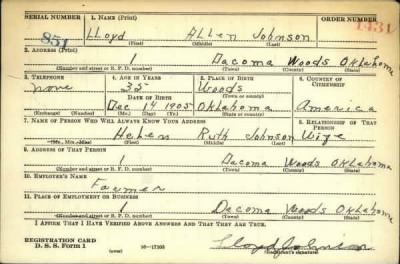 SERIAL NUMBER 1. NAME (Print) ORDER NUMBER
851 Lloyd Allen Johnson 1431
(First) (Middle) (Last)
2. ADDRESS (Print)
1 Dacoma Woods Oklahoma
(Number and street or R. F. D. number) (Town) (County) (State)
3. TELEPHONE 4. AGE IN YEARS 5. PLACE OF BIRTH 6. COUNTRY OF CITIZENSHIP
none 35 Woods
DATE OF BIRTH (Town or county)
Dec 14 1905 Oklahoma America
(Exchange) (Number) (Mo.) (Day) (Yr.) (State or country)
7. NAME OF PERSON WHO WILL ALWAYS KNOW YOUR ADDRESS 8. RELATIONSHIP OF THAT PERSON
Helen Ruth Johnson Wife
(Mr., Mrs., Miss) (First) (Middle) (Last)
9. ADDRESS OF THAT PERSON
1 Dacoma Woods Oklahoma
(Number and street or R. F. D. number) (Town) (County) (State)
10. EMPLOYER'S NAME
Farmer
11. PLACE OF EMPLOYMENT OR BUSINESS
1 Dacoma Woods Oklahoma
(Number and street or R. F. D. number) (Town) (County) (State)
I AFFIRM THAT I HAVE VERIFIED ABOVE ANSWERS AND THAT THEY ARE TRUE.
REGISTRATION CARD
D. S. S. Form 1 (over) 16—17105 Lloyd Johnson
(Registrant's signature)